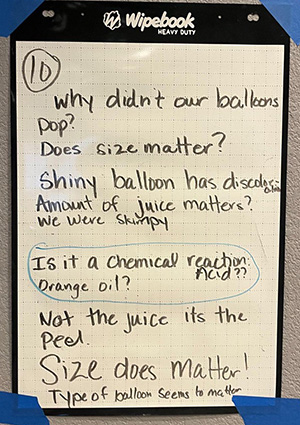 Wipebook
HEAVY DUTY
10
Why didn't our balloons
pop?
Does size matter?
Shiny balloon has discoloration
Amount of juice matters?
We were skimpy
Is it a chemical reaction:
Acid??
Orange oil?
Not the juice its the
Peel.
Size does matter!
Type of balloon seems to matter